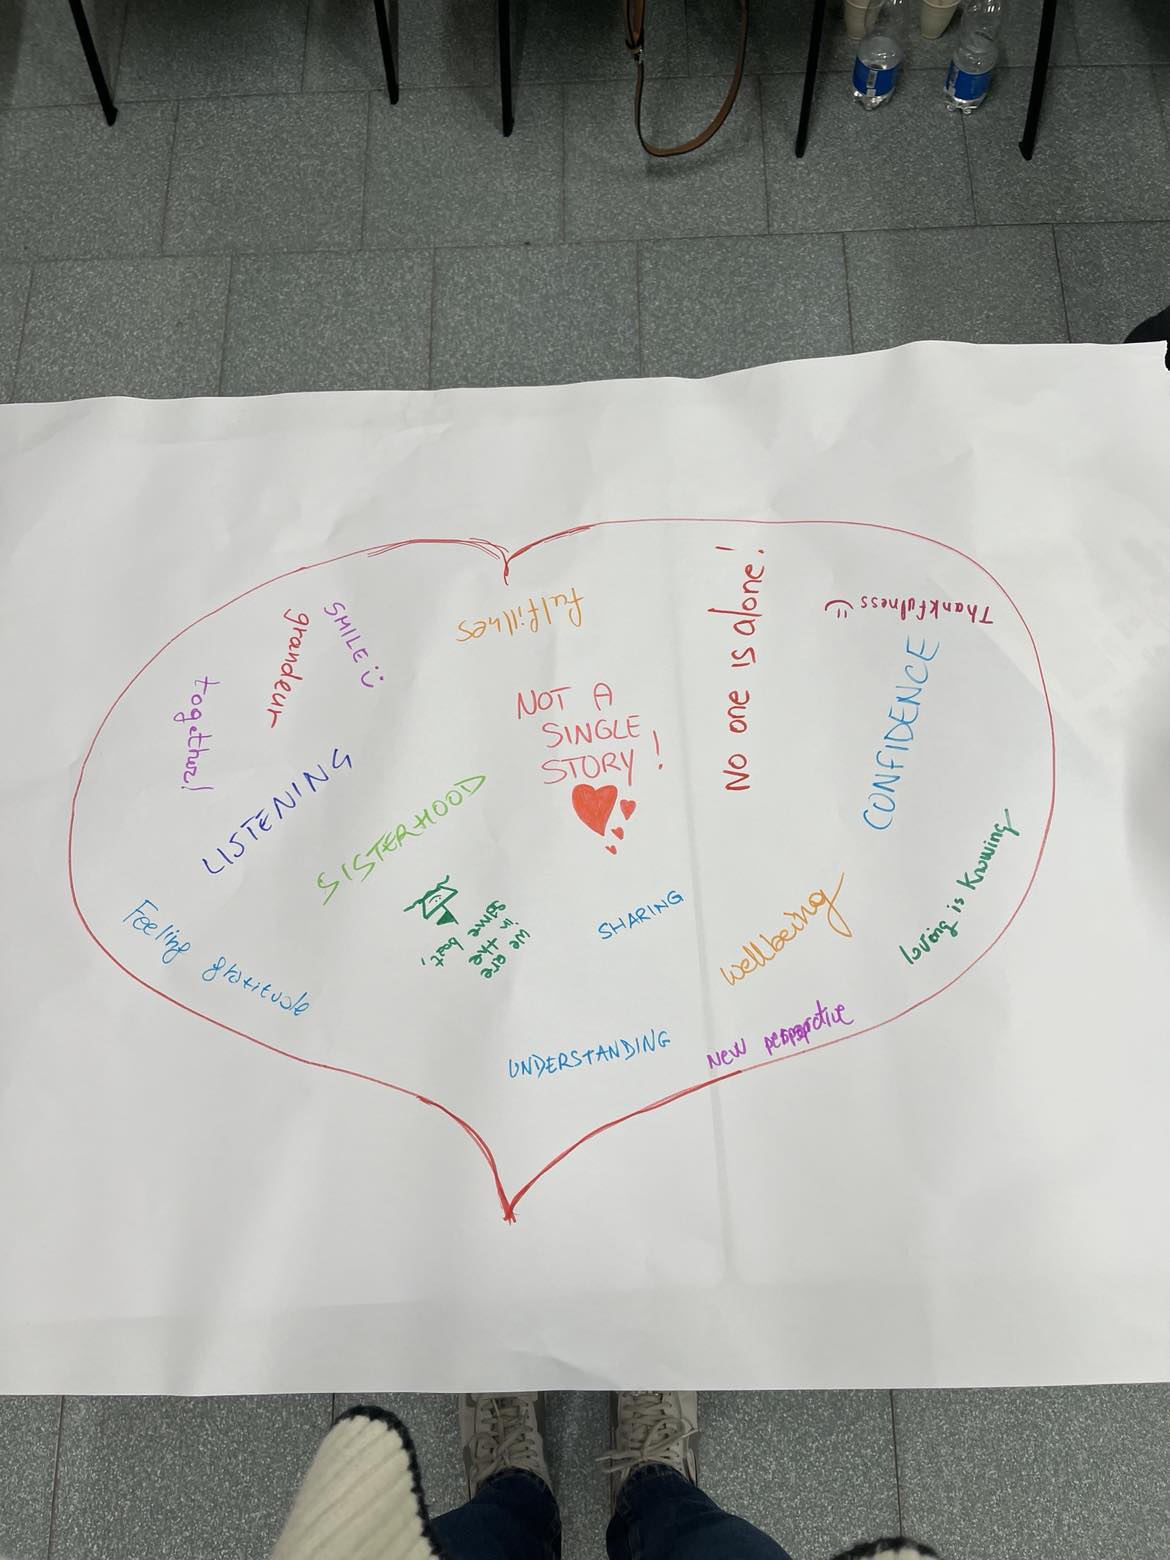 fulfillnes
No one is alone!
Thankfulness
SMILE
grandeur
together!
NOT A
SINGLE
STORY!
CONFIDENCE
LISTENING
SISTERHOOD
loving is knowing
we are
is the
same boat,
SHARING
wellbeing
Feeling gratitude
UNDERSTANDING
New